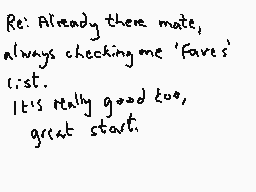 Re: Already there mate,
always checking me 'Faves'
list.
It's really good too,
great start.